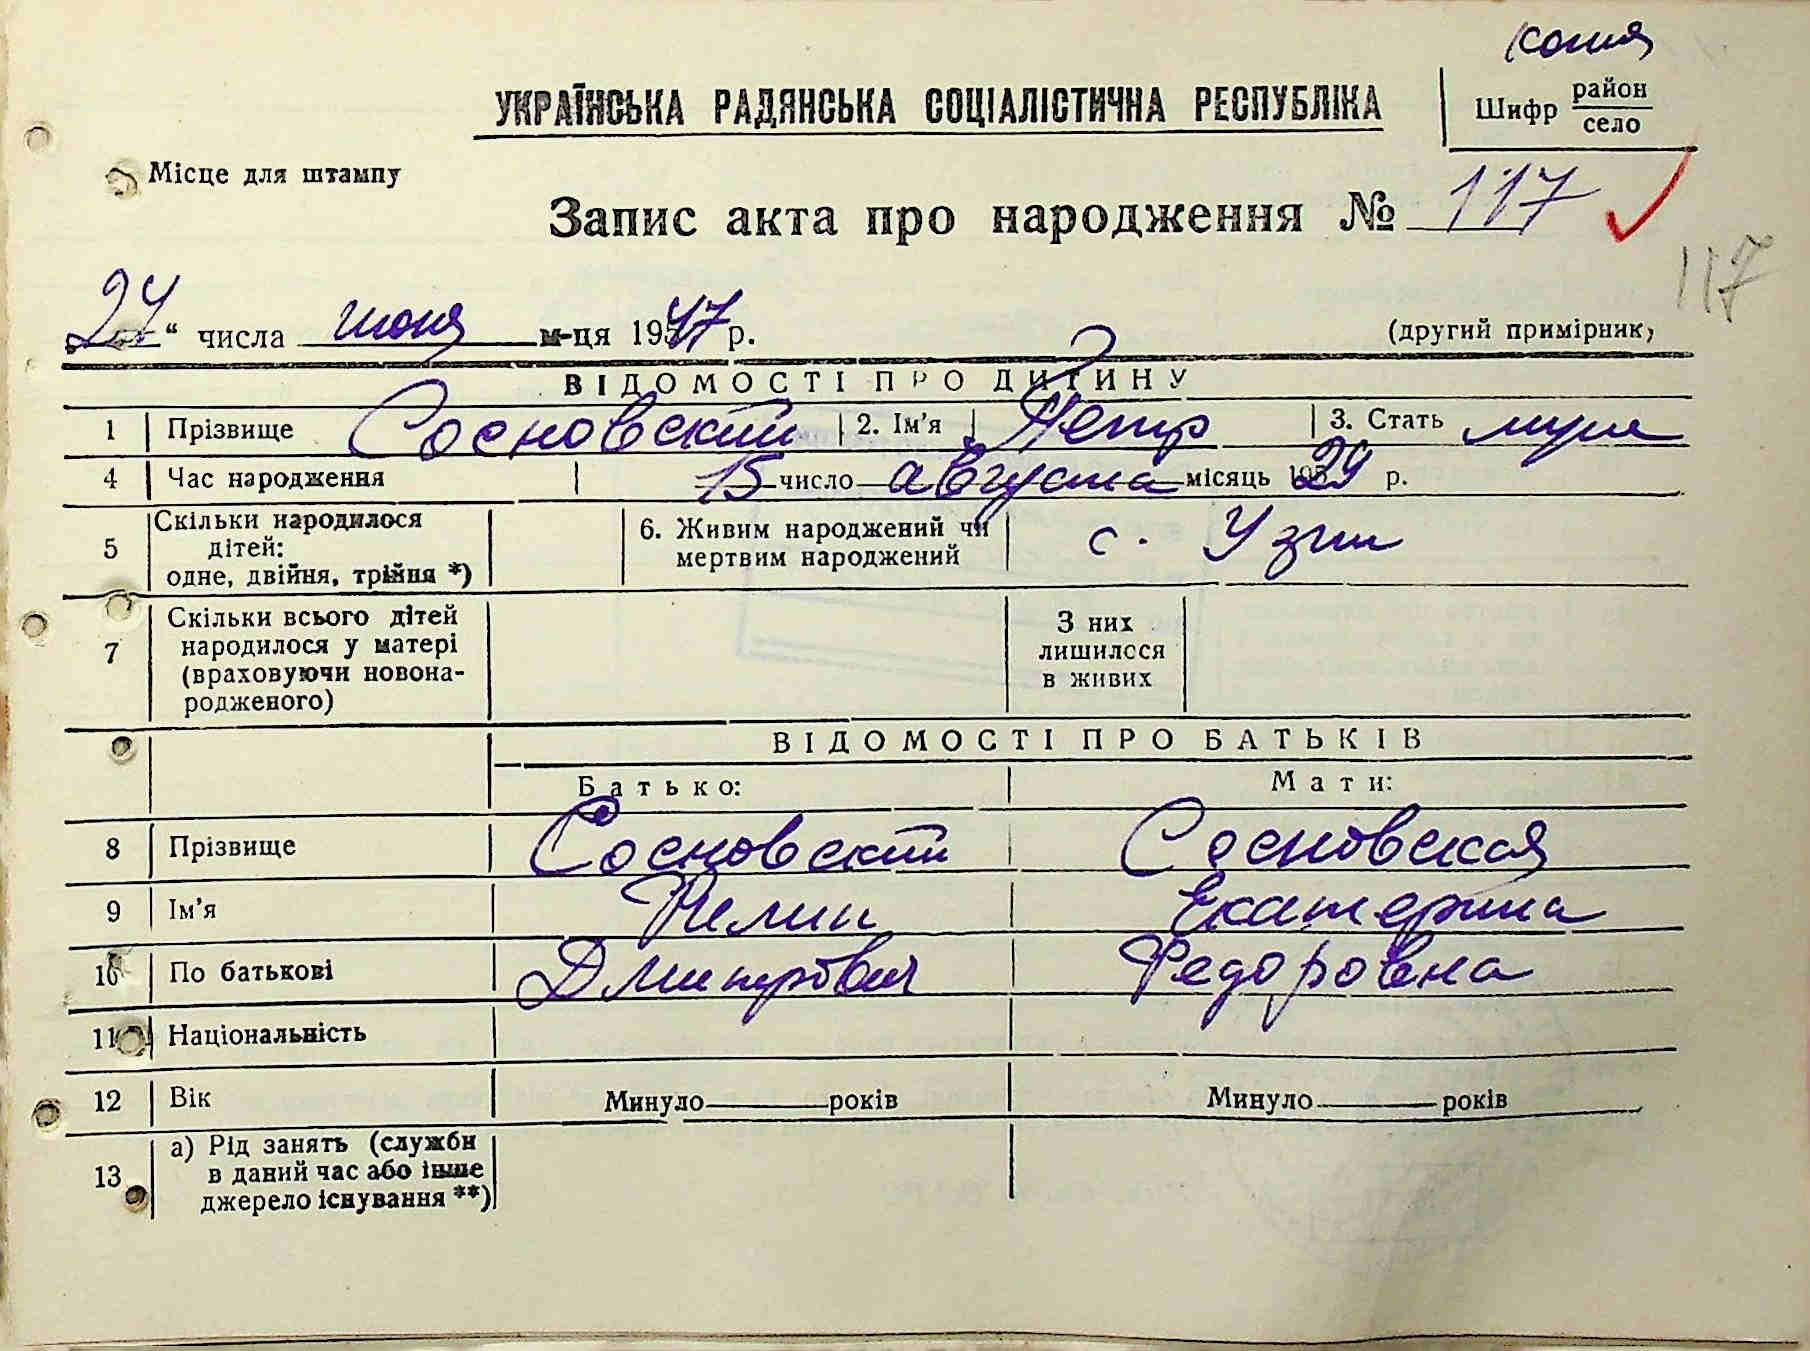 копия
УКРАЇНСЬКА РАДЯНСЬКА СОЦІАЛІСТИЧНА РЕСПУБЛІКА
Шифр район
село
Місце для штампу
Запис акта про народження № 117
117
24 “ числа июня м-ця 1947 р.
(другий примірник)
ВІДОМОСТІ ПРО ДИТИНУ
1 Прізвище Сосновский 2. Ім’я Петр 3. Стать муж
4 Час народження 15 число августа місяць 1929 р.
5 Скільки народилося дітей: одне, двійня, трійня *) 6. Живим народжений чи мертвим народжений с. Узин
7 Скільки всього дітей народилося у матері (враховуючи новонародженого) З них лишилося в живих
ВІДОМОСТІ ПРО БАТЬКІВ
Батько: Мати:
8 Прізвище Сосновский Сосновская
9 Ім’я Екатерина
10 По батькові Дмитрович Федоровна
11 Національність
12 Вік Минуло років Минуло років
13 а) Рід занять (служби в даний час або інше джерело існування **)